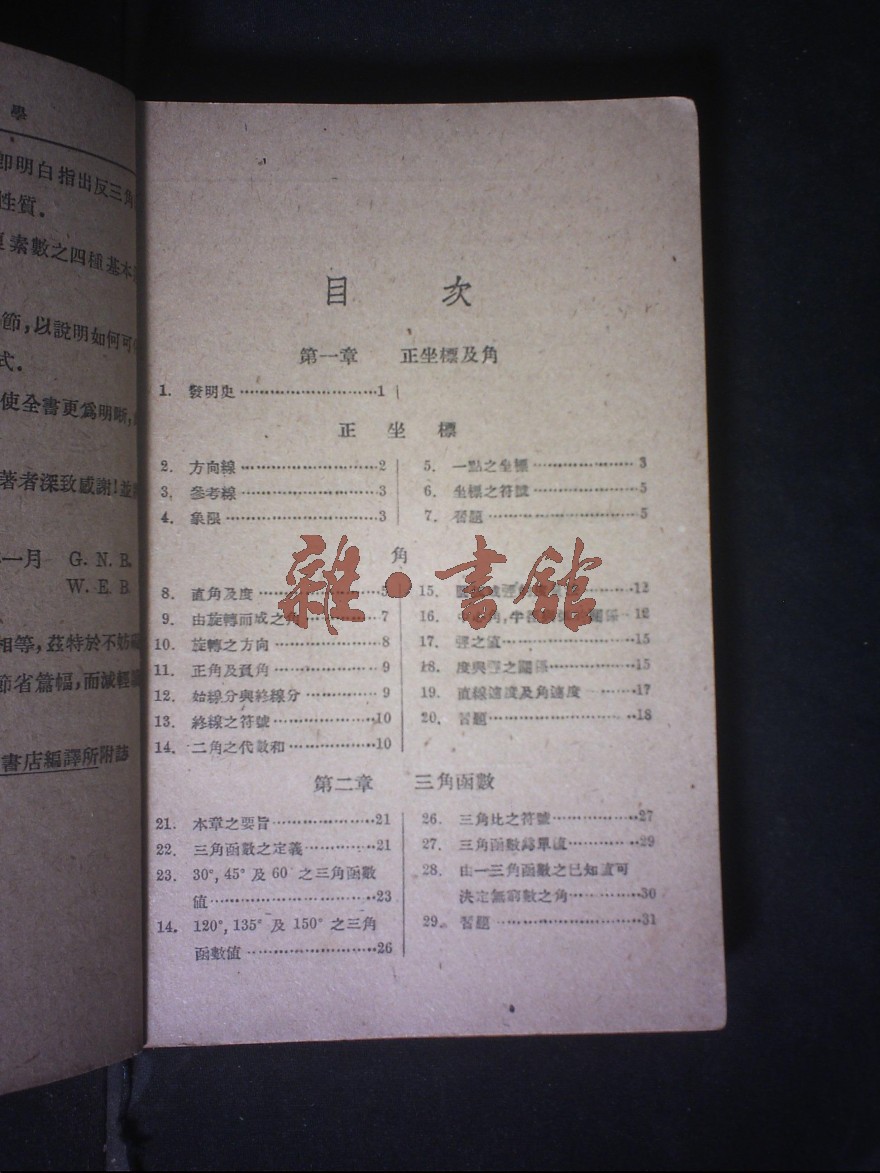 學
即明白指出反三角
性質。
素數之四種基本
節,以說明如何可
式。
使全書更爲明晰,
著者深致感謝!並
一月 G. N. B.
W. E. B.
相等,茲特於不妨
節省篇幅,而減輕
書店編譯所附誌
目 次
第一章 正坐標及角
1. 發明史…………………………1
正 坐 標
2. 方向線…………………………2
3. 參考線…………………………3
4. 象限……………………………3
5. 一點之坐標…………………3
6. 坐標之符號…………………5
7. 習題…………………………5
角
8. 直角及度……………………5
9. 由旋轉而成之角……………7
10. 旋轉之方向…………………8
11. 正角及負角…………………9
12. 始線分與終線分……………9
13. 終線之符號…………………10
14. 二角之代數和………………10
15. …………12
16. 角,半 關係…12
17. 弳之值………………………15
18. 度與弳之關係………………15
19. 直線速度及角速度…………17
20. 習題…………………………18
第二章 三角函數
21. 本章之要旨…………………21
22. 三角函數之定義……………21
23. 30°, 45° 及 60 之三角函數
值……………………………23
14. 120°, 135° 及 150° 之三角
函數值………………………26
26. 三角比之符號………………27
27. 三角函數爲單值……………29
28. 由一三角函數之已知值可
決定無窮數之角……………30
29. 習題…………………………31
雜·書館